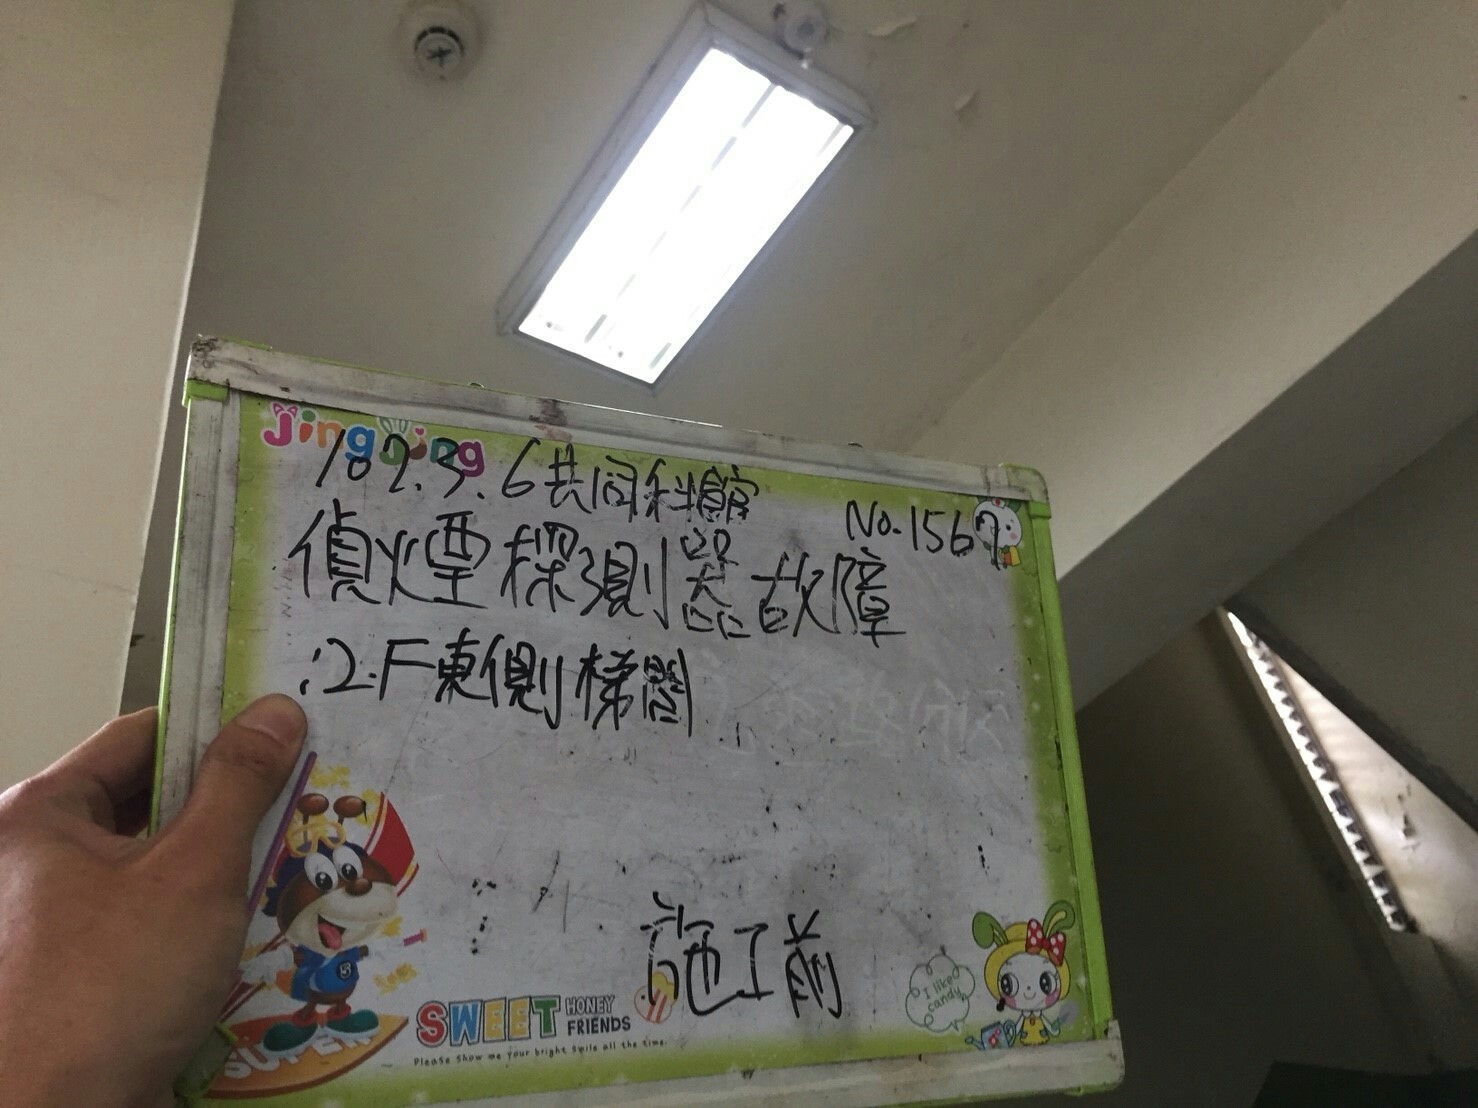 Jingjing
107.3.6共同科館
No.1567
偵煙探測器故障
:12F東側梯間
施工前
I like candy
SWEET HONEY FRIENDS
Please show me your bright smile all the time.